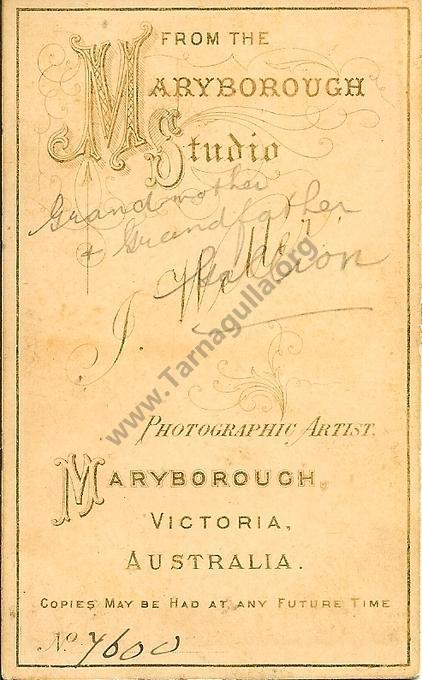 FROM THE
MARYBOROUGH
Studio
Grandmother
+ Grandfather
J. W.
www.Tarnagulla.org
PHOTOGRAPHIC ARTIST.
MARYBOROUGH,
VICTORIA,
AUSTRALIA.
COPIES MAY BE HAD AT ANY FUTURE TIME
No 7600